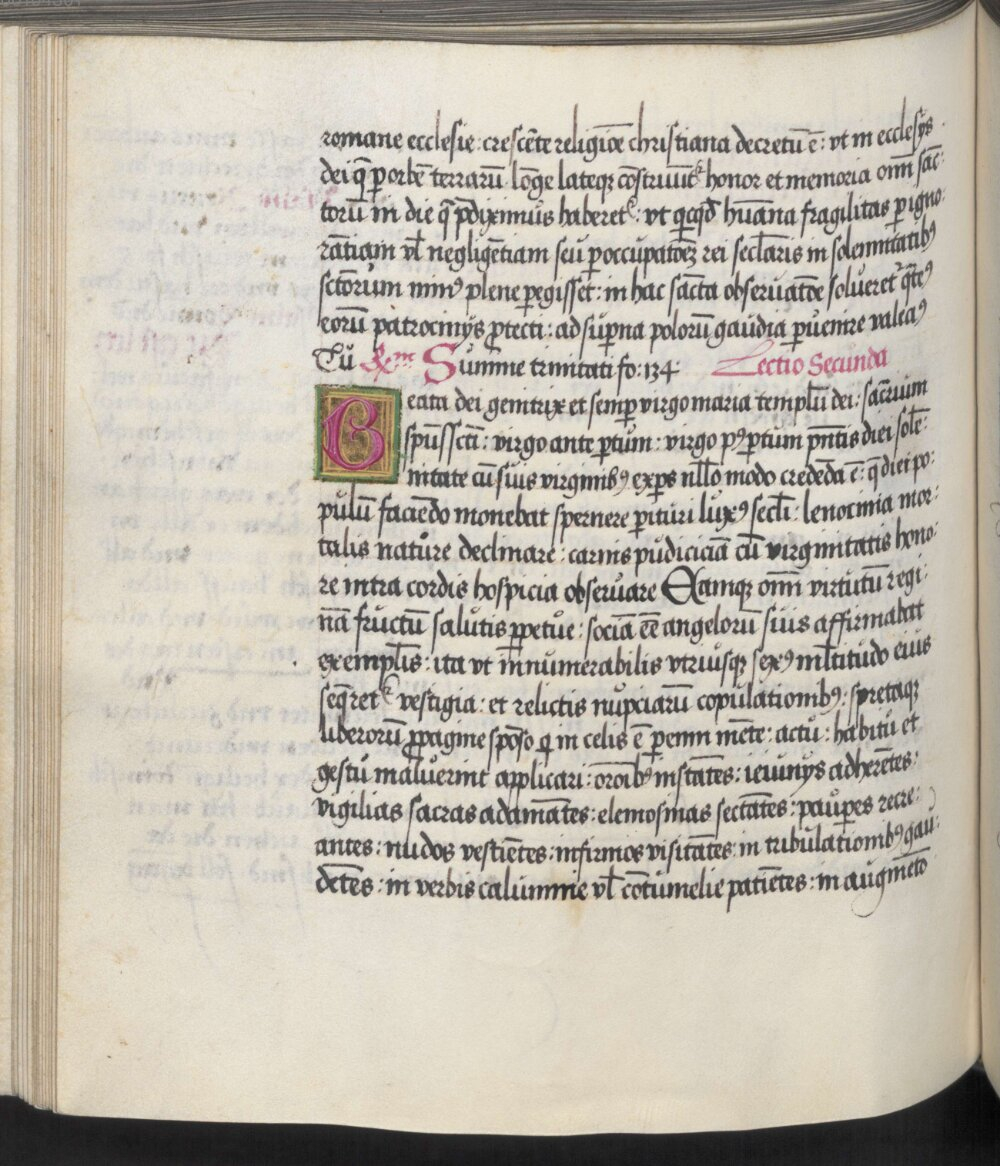 romane ecclesie : crescēte religiōe christiana decretū ē : vt in ecclesijs
dei q̄ p orbē terrarū lōge lateqꝫ cōstruūt᷑ honor et memoria oīm sāc
torū in die q̄ p̄diximus haberet᷑ : vt qc̄qd̄ hūana fragilitas p igno
rātiam vl̄ negligētiam seu p occupatōeꝫ rei sec̄laris in solemnitatibꝰ
sctōrum minꝰ plene pegisset : in hac sācta obseruatōe solueret᷑ q̄teꝰ
eorū patrocinijs ꝓtecti : ad sup̄na polorū gaudia puenire valeāꝰ
Tū ℞m Summe trinitati fo : 134 Lectio Secunda
Beata dei genitrix et semp virgo maria templū dei : sacrarium
spūs scti : virgo ante ptum : virgo pꝰ ptum p̄ntis diei sole
nitate cū suis virginibꝰ exps nllō modo credēda ē : q̄ diei po
pulū faciēdo monebat spernere pituri luxꝰ secli : lenocinia mor
talis nature declinare : carnis pudiciciā cū virginitatis hono
re intra cordis hospicia obseruare Eamqꝫ oīm virtutū regi
nā fructū salutis ppetue : sociā eē angelorū suis affirmabat
exemplis : ita vt īnnumerabilis vtriusqꝫ sexꝰ mltitudo eius
seq̄ret᷑ vestigia : et relictis nupciarū copulationibꝰ : spretaqꝫ
liberorū ꝓpagine spōso q in celis ē pemī mēte : actu : habitu et
gestu maluerint applicari : orōibꝰ instātes : ieiunijs adherētes :
vigilias sacras adamātes : elemosinas sectātes : paupes recre
antes : nudos vestiētes : infirmos visitātes : in tribulationibꝰ gau
dētes : in verbis calumnie vl̄ cōtumelie patiētes : in augmēto